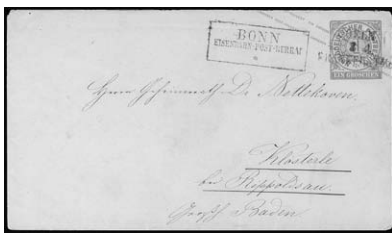 BONN
EISENBAHN-POST-BÜREAU
EIN GROSCHEN
Herrn Geheimrath Dr. Nettekoven.
Klösterle
bei Rippoldsau.
Baden.